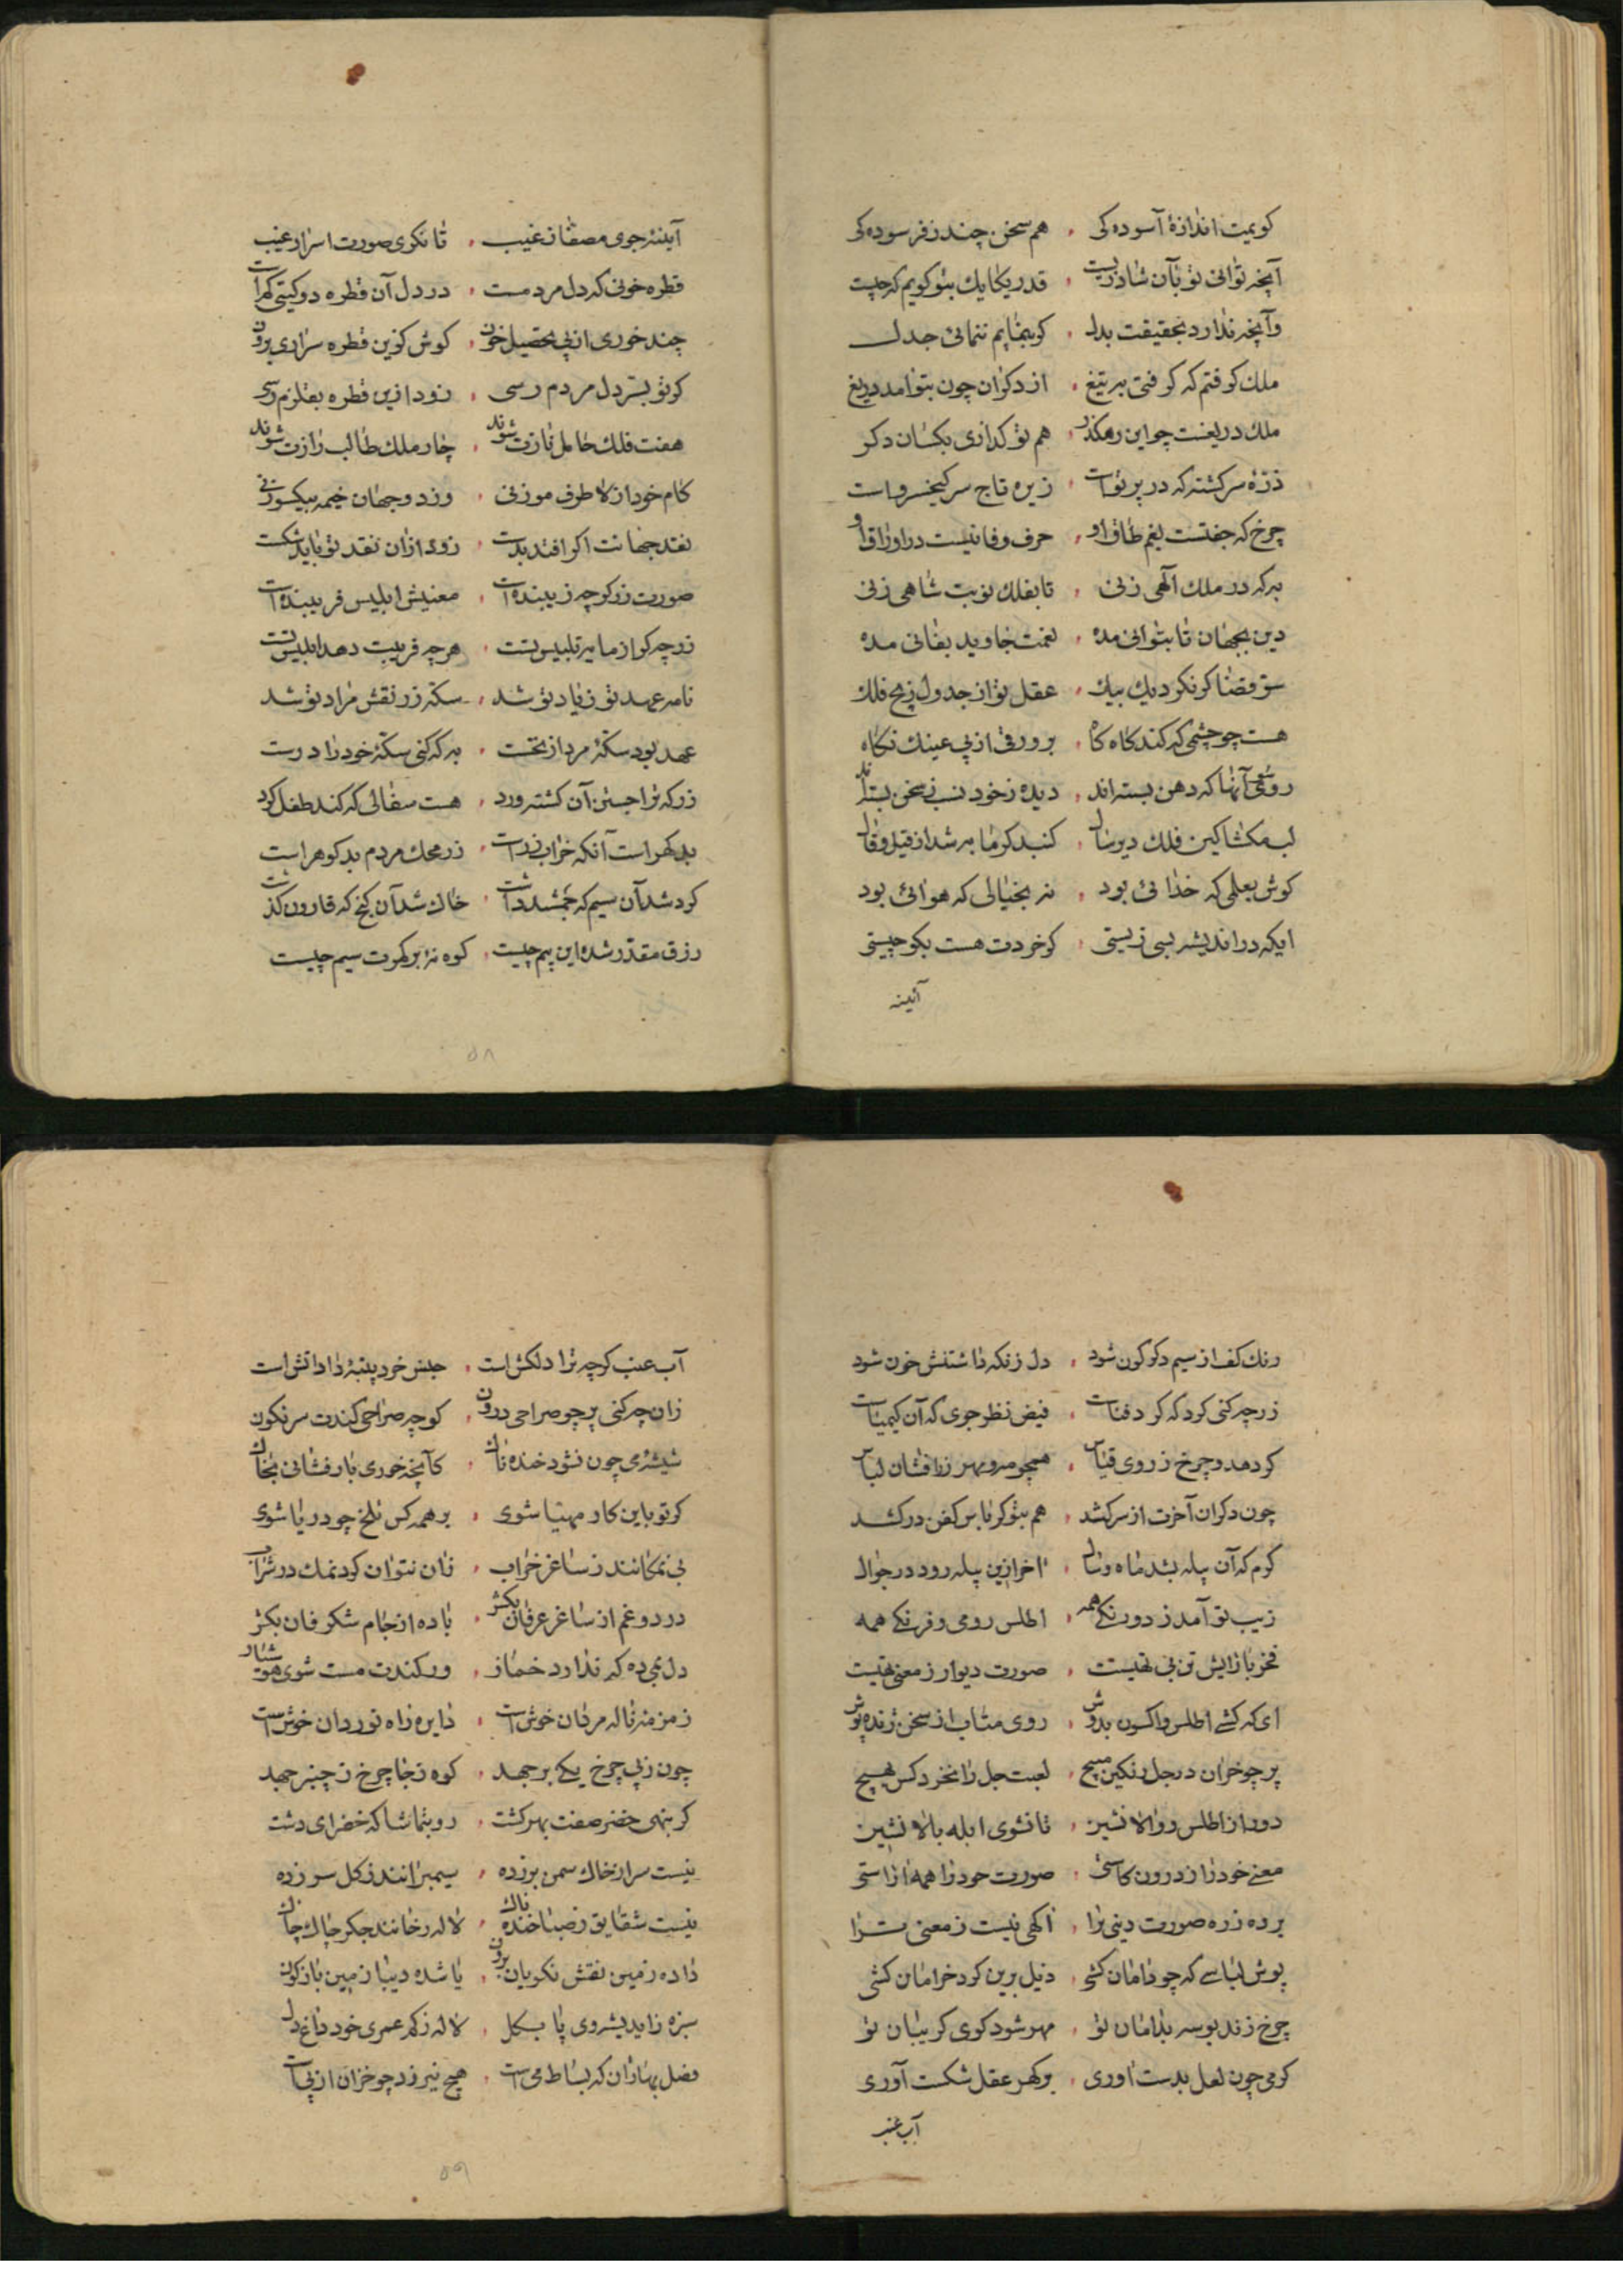 کویمت اندازهٔ آسوده کی هم سخن چند ز فرسوده کی
آنچه توانی تو بآن شاد زیست قدر یکایك بتو کویم که چیست
وآنچه ندارد بحقیقت بدل کو بنمایم ننمائی جدل
ملك کرفتم که کرفتی به تیغ از دکران چون بتو آمد دریغ
ملك دریغست چو این رهکذر هم تو کذاری بکسان دکر
ذرّهٔ سرکشته که در پرتو است زیره تاج سر کیخسرو است
چرخ که جفتست بغم طاق او حرف وفا نیست در اوراق او
به که در ملك آلهی زنی تا بفلك نوبت شاهی زنی
دین بجهان تا بتوانی مده نعمت جاوید بفانی مده
سرّ قضا کر نکرد یك بیك عقل تو از جدول زیج فلك
هست چو چشمی که کند کاه کاه بر ورقی از پی عینك نکاه
روشنی آنها که دهن بسته اند دیده ز خود نب ز سخن بسته اند
لب مکشا کین فلك دیر سال کنبد کرمابه شد از قیل و قال
کوش بعلمی که خدائی بود نه بخیالی که هوائی بود
ایکه در اندیشه بسی زیستی کر خردت هست بکو چیستی
آئینه
آینهٔ جوی مصفا ز غیب تا نکری صورت اسرار غیب
قطره خونی که دل مردمست در دل آن قطره دو کیتی کم است
چند خوری از پی تحصیل خون کوش کزین قطره سر آری برون
کر تو بسرّ دل مردم رسی زود ازین قطره بقلزم رسی
هفت فلك حامل نازت شوند چار ملك طالب رازت شوند
کام خود از لا طرف هو زنی وز دو جهان خیمه بیکسو زنی
نقد جهانت اکر افتد بدست زود ازان نقد تو باید شکست
صورت زر کرچه زیبنده است معنیش ابلیس فریبنده است
زر چه کر از مایه تلبیس تست هرچه فریبت دهد ابلیس تست
نامه عهد تو ز یاد تو شد سکّه زر نقش مراد تو شد
عهد بود سکّهٔ مرد از نخست به که کنی سکّهٔ خود را درست
زر که ترا جستن آن کشته ورد هست سفالی که کند طفل کرد
بد کهر است آنکه خراب زر است زر محك مردم بد کوهر است
کرد شد آن سیم که جمشید داشت خاك شد آن کنج که قارون کذاشت
رزق مقدّر شده این بیم چیست کوه نهٔ بر کمرت سیم چیست
رنك کف از سیم دکرکون شود دل ز نکه داشتنش خون شود
زر چه کنی کرد که کرد فناست فیض نظر جوی که آن کیمیاست
کر دهدت چرخ ز روی قیاس همچو مه و مهر زرافشان لباس
چون دکران آخرت از سر کشد هم بتو کرباس کفن در کشد
کرم که آن پیله بتد ماه و سال آخر ازین پیله رود در جوال
زیب تو آمد ز دو رنکی همه اطلس رومی و فرنکی همه
فخر بآرایش تن بی تهیست صورت دیوار ز معنی تهیست
ای که کشی اطلس و اکسون بدوش روی متاب از سخن ژنده پوش
پر چو خران در جل رنکین مپیچ لعبت جل را نخرد کس بهیچ
دور از اطلس و والا نشین تا نشوی ابله بالا نشین
معنی خود را ز درون کاستی صورت خود را همه آراستی
برده ز ره صورت دینی ترا آکهی نیست ز معنی ترا
پوش لباسی که چو دامان کشی ذیل برین کرد خرامان کشی
چرخ زند بوسه بدامان تو مهر شود کوی کریبان تو
کر می چون لعل بدست آوری بر کهر عقل شکست آوری
آب عنب
آب عنب کرچه ترا دلکش است جنس خرد پنبهٔ را آتش است
زان چه کنی پر چو صراحی درون کو چو صراحی کندت سرنکون
شیشه می چون نشود خنده ناك کآنچه خوری باز فشانی بخاك
کر تو باین کار مهیّا شوی بر همه کس تلخ چو دریا شوی
بی نمکانند ز ساغر خراب زان نتوان کرد نمك در شراب
درد و غم از ساغر عرفان بکش باده از جام شکرفان بکش
دل بمی ده که ندارد خمار ور کندت مست شوی هوشیار
زمزمه ناله مردان خوش است دایره راه نوردان خوش است
چون ز پی چرخ یکی بر جهد کوه ز جا چرخ ز چنبر جهد
کر بنهی خضر صفت بهر کشت رو بتماشا که خضرای دشت
نیست سر از خاك سمن بر زده سیمبرانند ز کل سر زده
نیست شقایق ز صبا خنده ناك لاله رخانند جکر چاك چاك
داده زمین نقش نکویان برون یا شده دیبا ز مین باز کون
سبزه ز امید پشروی پا بکل لاله ز کم عمری خود داغ دل
فصل بهاران که بساط می است هیچ نیرزد چو خزان از پی است
۵۸
۵۹